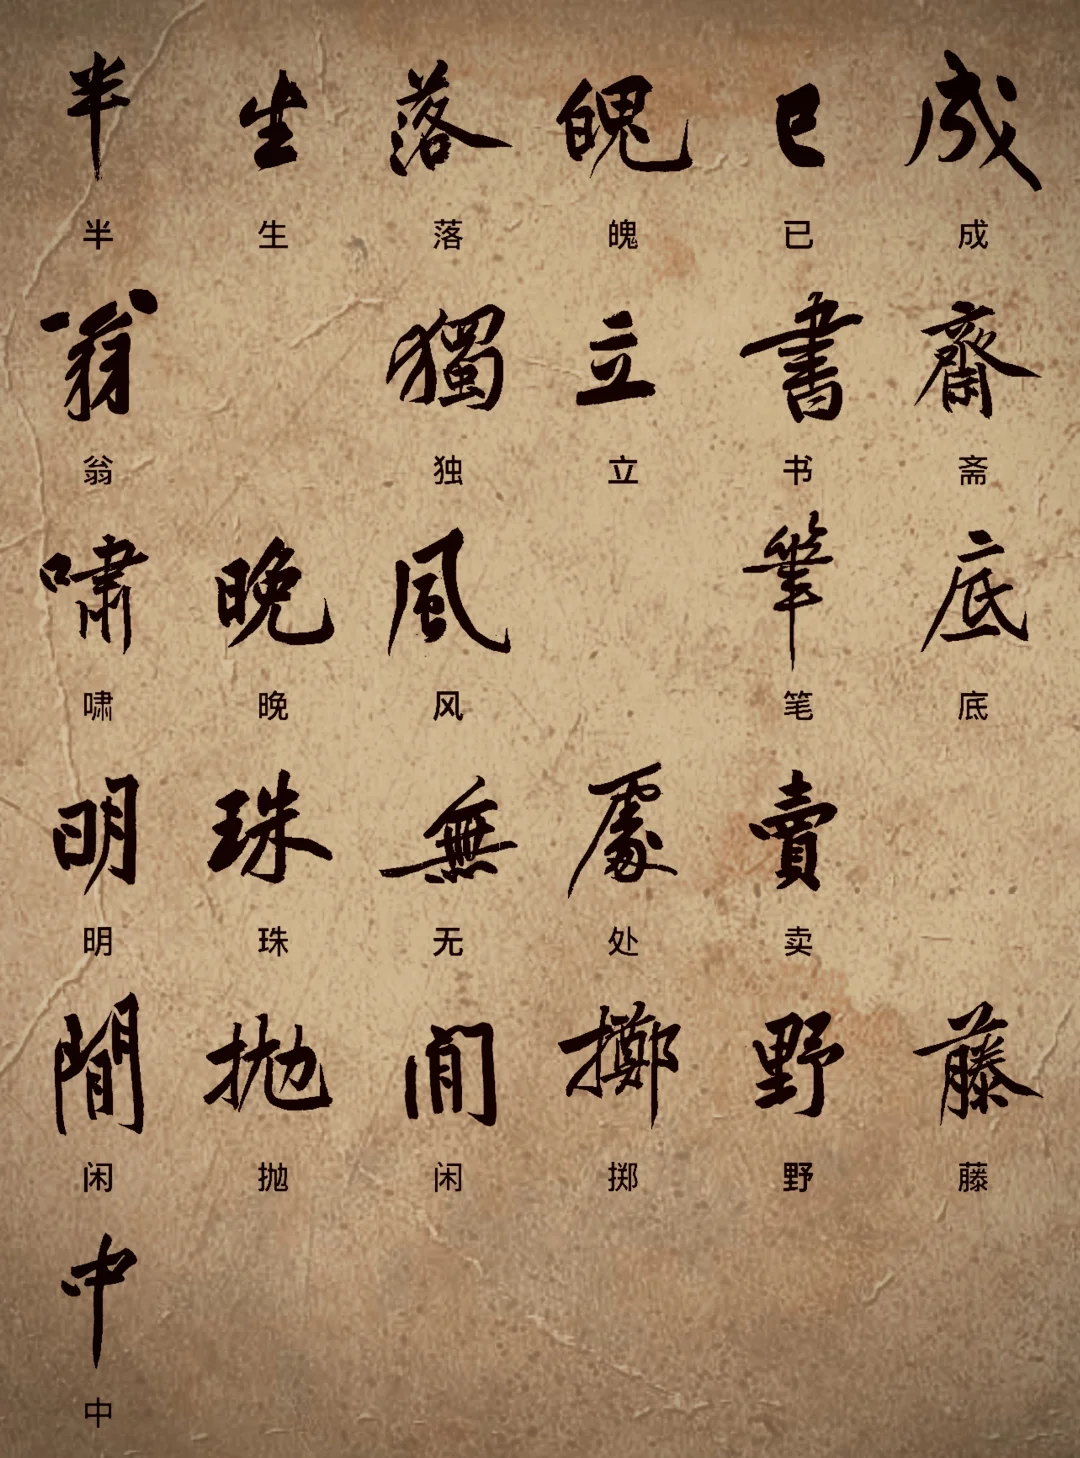 半 生 落 魄 已 成
半 生 落 魄 已 成
翁 獨 立 書 齋
翁 独 立 书 斋
嘯 晚 風 筆 底
啸 晚 风 笔 底
明 珠 無 處 賣
明 珠 无 处 卖
閒 抛 閒 擲 野 藤
闲 抛 闲 掷 野 藤
中
中